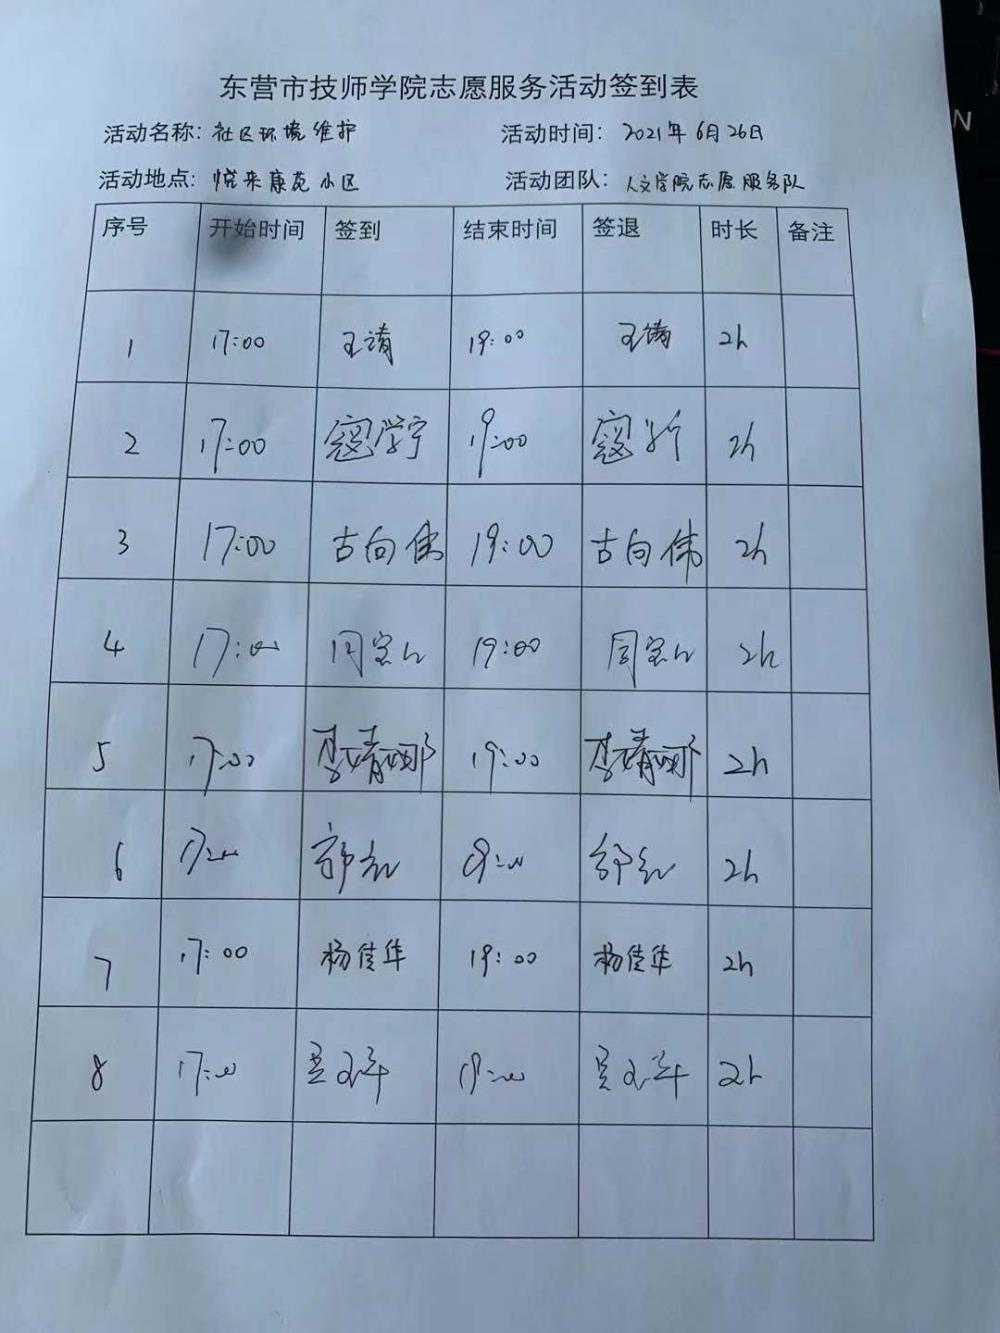 东营市技师学院志愿服务活动签到表
活动名称：社区环境维护 活动时间：2021年6月26日
活动地点：悦来康苑小区 活动团队：人文学院志愿服务队
序号 开始时间 签到 结束时间 签退 时长 备注
1 17:00 王靖 19:00 王靖 2h
2 17:00 寇学宁 19:00 寇学宁 2h
3 17:00 古向伟 19:00 古向伟 2h
4 17:00 19:00 2h
5 17:00 李婧娜 19:00 李婧娜 2h
6 17:00 19:00 2h
7 17:00 杨佳华 19:00 杨佳华 2h
8 17:00 19:00 2h
N